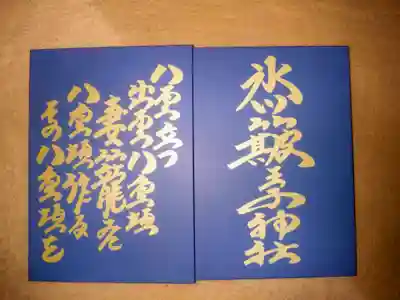 氷川簸王子神社
八雲立つ
出雲八重垣
妻籠みに
八重垣作る
その八重垣を